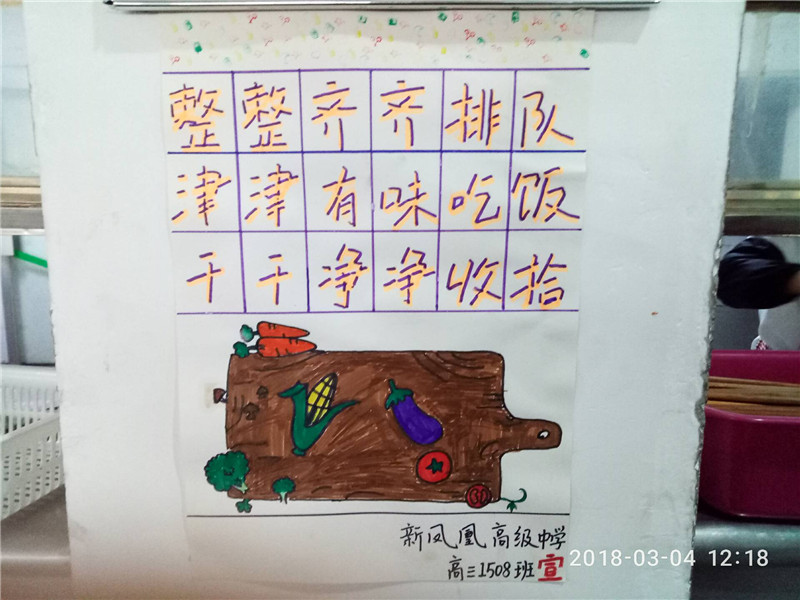 整整齐齐排队
津津有味吃饭
干干净净收拾
新凤凰高级中学
高三1508班宣
2018-03-04 12:18